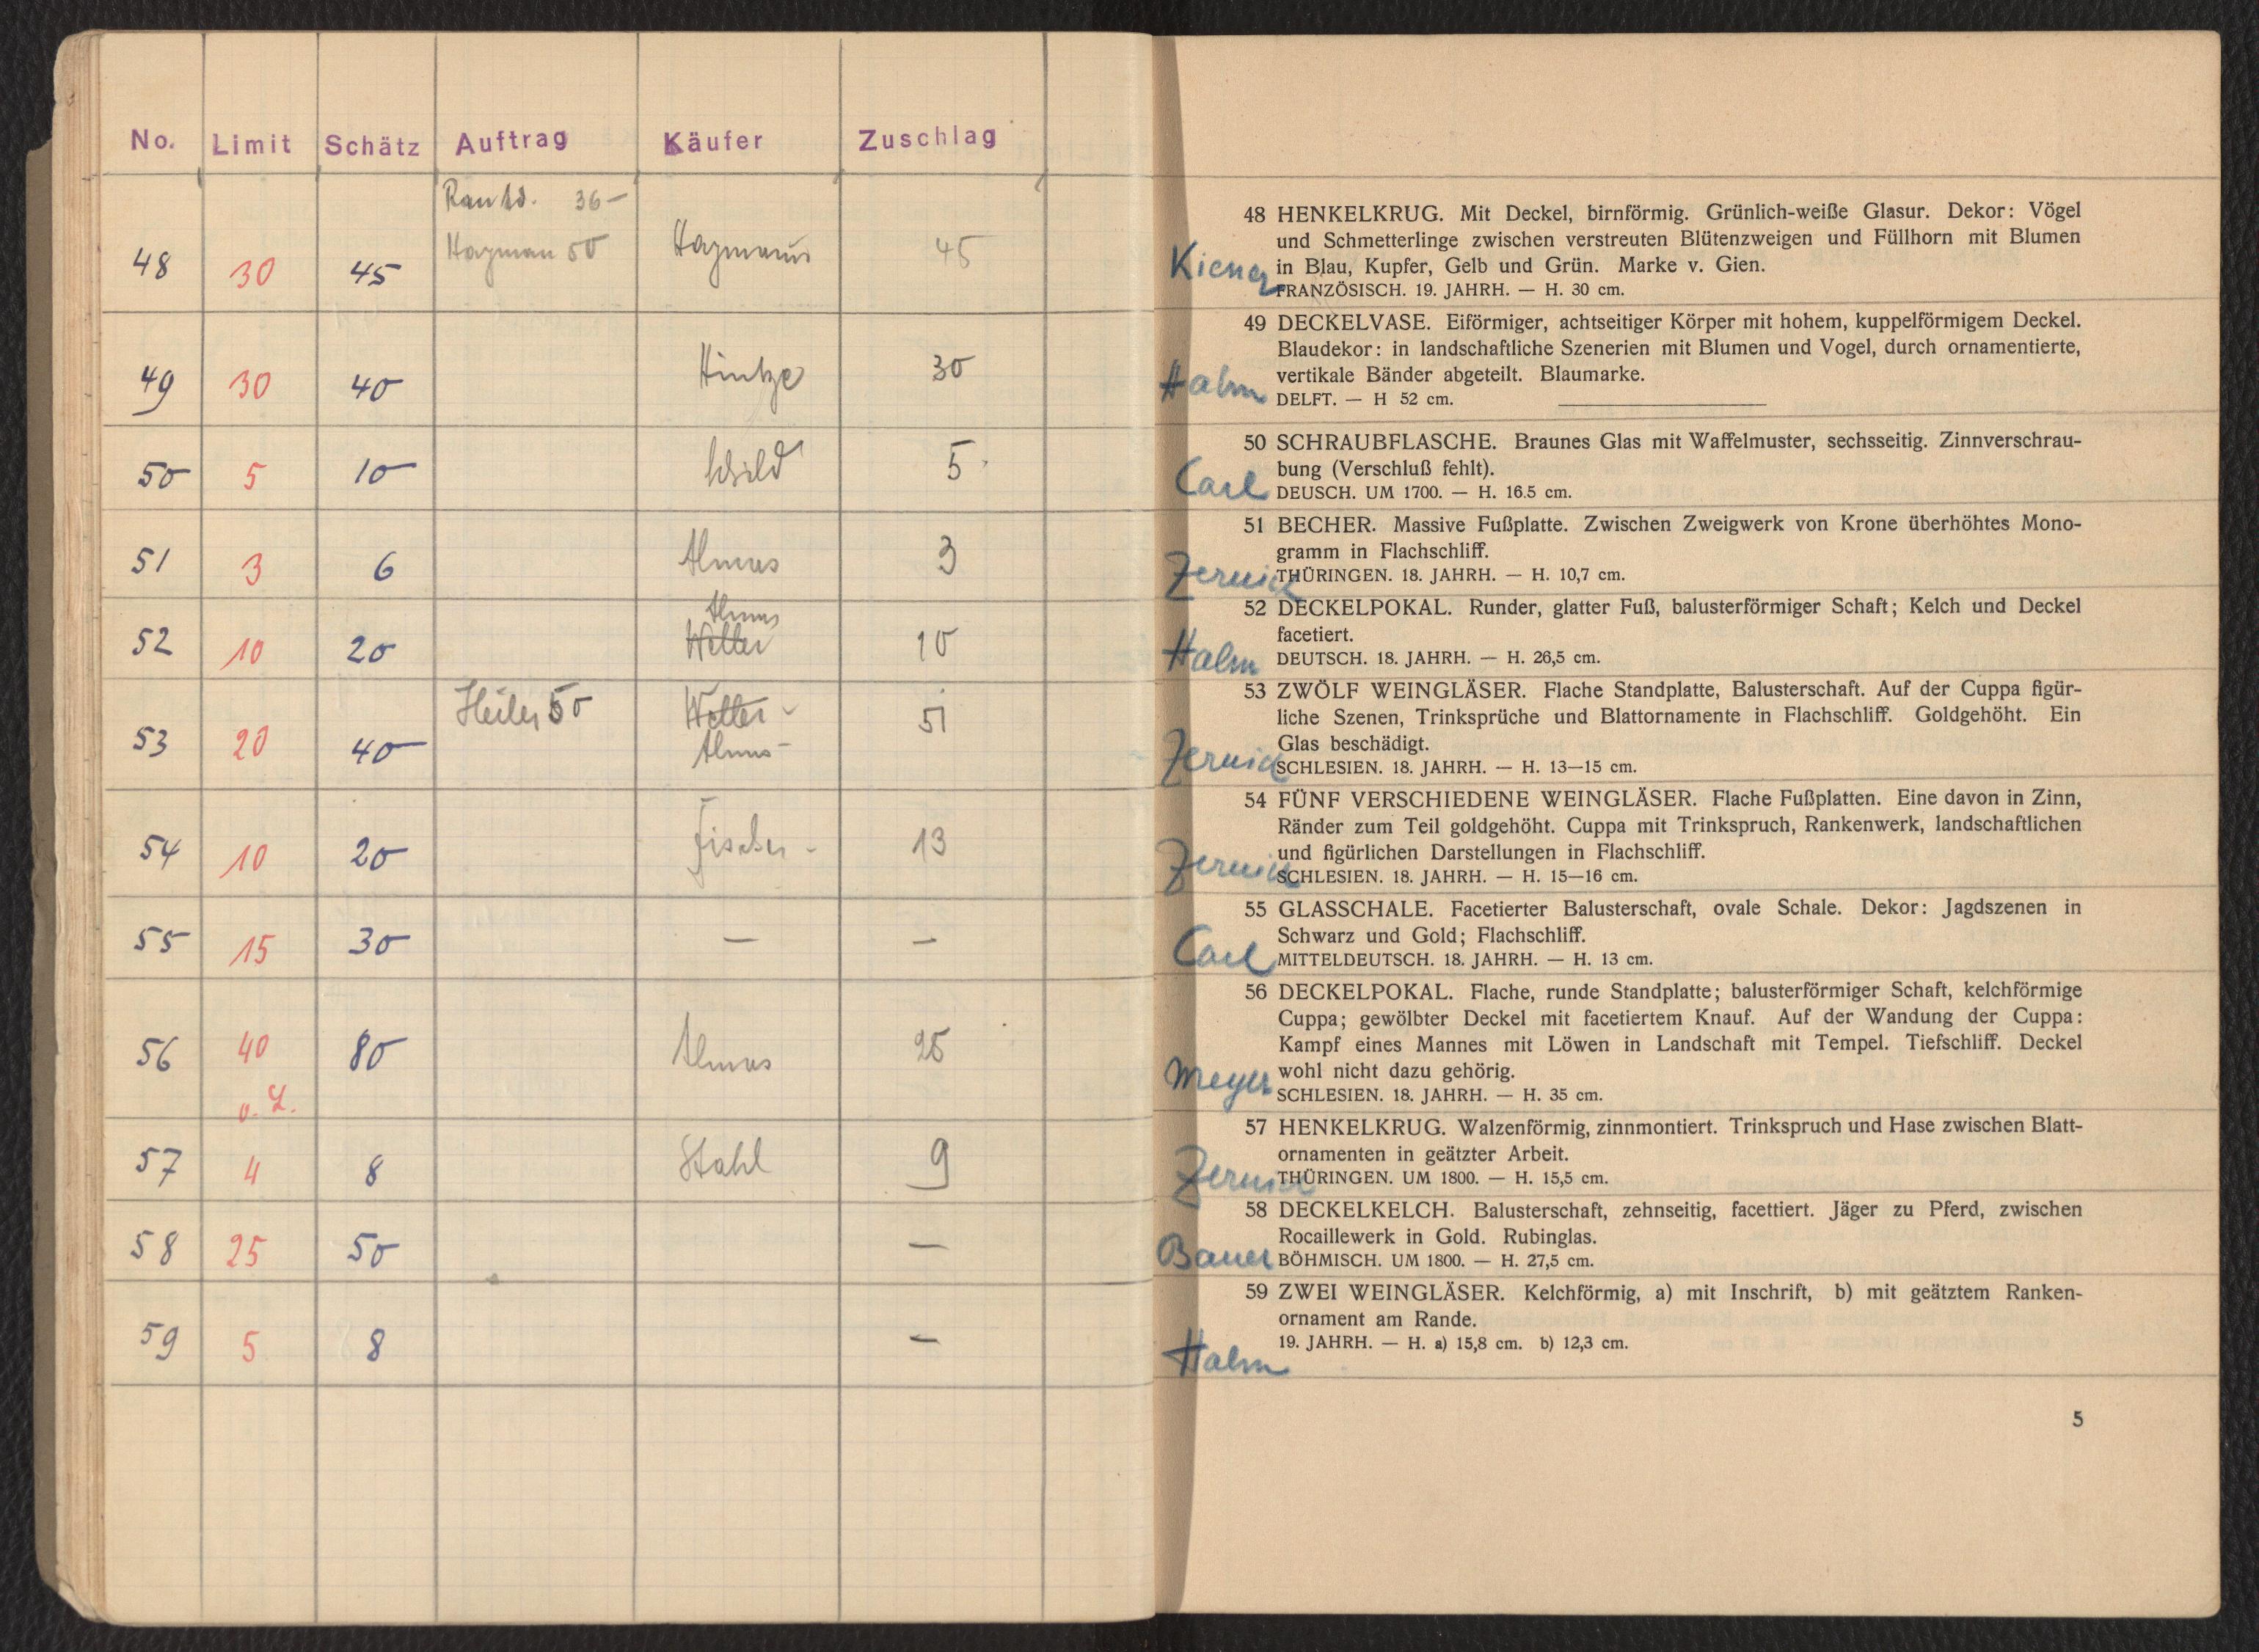 No. Limit Schätz Auftrag Käufer Zuschlag
36-
48 30 45 Hayman 50 Haymann 45
49 30 40 Hintze 30
50 5 10 Wild 5
51 3 6 Almas 3
Almas
52 10 20 Wetter 10
53 20 40 Heiler 50 Wetter - 51
Almas -
54 10 20 Fischer - 13
55 15 30 — —
56 40 80 Almas 25
o. L.
57 4 8 Stahl 9
58 25 50 —
59 5 8 —
48 HENKELKRUG. Mit Deckel, birnförmig. Grünlich-weiße Glasur. Dekor: Vögel
und Schmetterlinge zwischen verstreuten Blütenzweigen und Füllhorn mit Blumen
Kiener in Blau, Kupfer, Gelb und Grün. Marke v. Gien.
FRANZÖSISCH. 19. JAHRH. — H. 30 cm.
49 DECKELVASE. Eiförmiger, achtseitiger Körper mit hohem, kuppelförmigem Deckel.
Blaudekor: in landschaftliche Szenerien mit Blumen und Vogel, durch ornamentierte,
Halm vertikale Bänder abgeteilt. Blaumarke.
DELFT. — H 52 cm.
50 SCHRAUBFLASCHE. Braunes Glas mit Waffelmuster, sechsseitig. Zinnverschrau-
bung (Verschluß fehlt).
Carl DEUSCH. UM 1700. — H. 16.5 cm.
51 BECHER. Massive Fußplatte. Zwischen Zweigwerk von Krone überhöhtes Mono-
gramm in Flachschliff.
Zernick THÜRINGEN. 18. JAHRH. — H. 10,7 cm.
52 DECKELPOKAL. Runder, glatter Fuß, balusterförmiger Schaft; Kelch und Deckel
facetiert.
Halm DEUTSCH. 18. JAHRH. — H. 26,5 cm.
53 ZWÖLF WEINGLÄSER. Flache Standplatte, Balusterschaft. Auf der Cuppa figür-
liche Szenen, Trinksprüche und Blattornamente in Flachschliff. Goldgehöht. Ein
Glas beschädigt.
Zernick SCHLESIEN. 18. JAHRH. — H. 13—15 cm.
54 FÜNF VERSCHIEDENE WEINGLÄSER. Flache Fußplatten. Eine davon in Zinn,
Ränder zum Teil goldgehöht. Cuppa mit Trinkspruch, Rankenwerk, landschaftlichen
und figürlichen Darstellungen in Flachschliff.
Zernick SCHLESIEN. 18. JAHRH. — H. 15—16 cm.
55 GLASSCHALE. Facetierter Balusterschaft, ovale Schale. Dekor: Jagdszenen in
Schwarz und Gold; Flachschliff.
Carl MITTELDEUTSCH. 18. JAHRH. — H. 13 cm.
56 DECKELPOKAL. Flache, runde Standplatte; balusterförmiger Schaft, kelchförmige
Cuppa; gewölbter Deckel mit facetiertem Knauf. Auf der Wandung der Cuppa:
Kampf eines Mannes mit Löwen in Landschaft mit Tempel. Tiefschliff. Deckel
Meyer wohl nicht dazu gehörig.
SCHLESIEN. 18. JAHRH. — H. 35 cm.
57 HENKELKRUG. Walzenförmig, zinnmontiert. Trinkspruch und Hase zwischen Blatt-
ornamenten in geätzter Arbeit.
Zernick THÜRINGEN. UM 1800. — H. 15,5 cm.
58 DECKELKELCH. Balusterschaft, zehnseitig, facettiert. Jäger zu Pferd, zwischen
Rocaillewerk in Gold. Rubinglas.
Bauer BÖHMISCH. UM 1800. — H. 27,5 cm.
59 ZWEI WEINGLÄSER. Kelchförmig, a) mit Inschrift, b) mit geätztem Ranken-
ornament am Rande.
Halm 19. JAHRH. — H. a) 15,8 cm. b) 12,3 cm.
5